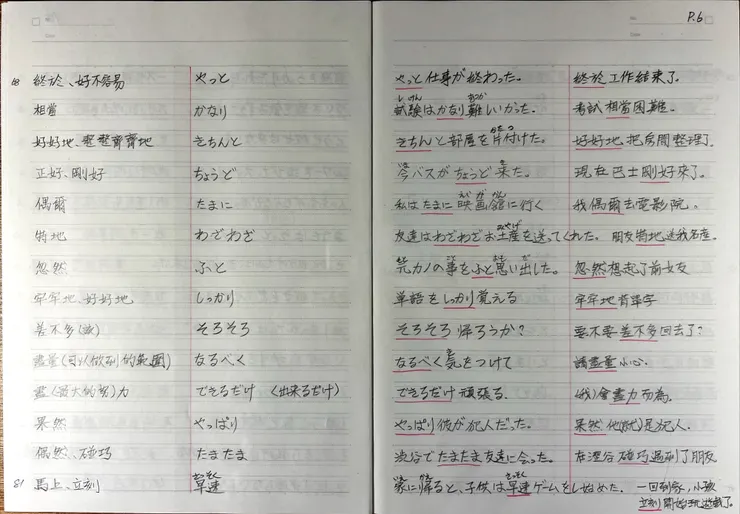 P.6
68 終於、好不容易 やっと やっと仕事が終わった。 終於工作結束了。
相當 かなり 試験はかなり難しいかった。 考試相當困難。
好好地、整整齊齊地 きちんと きちんと部屋を片付けた。 好好地把房間整理了。
正好、剛好 ちょうど 今バスがちょうど来た。 現在巴士剛好來了。
偶爾 たまに 私はたまに映画館に行く 我偶爾去電影院。
特地 わざわざ 友達はわざわざお土産を送ってくれた。 朋友特地送我名產。
忽然 ふと 元カノの事をふと思い出した。 忽然想起了前女友
牢牢地、好好地 しっかり 単語をしっかり覚える 牢牢地背單字
差不多(該) そろそろ そろそろ帰ろうか? 要不要差不多回去了?
盡量(可以做到的範圍) なるべく なるべく気をつけて 請盡量小心.
盡(最大的努)力 できるだけ (出来るだけ) できるだけ頑張る. (我)會盡力而為.
果然 やっぱり やっぱり彼が犯人だった. 果然他(就)是犯人.
偶然、碰巧 たまたま 渋谷でたまたま友達に会った。 在澀谷碰巧遇到了朋友
81 馬上、立刻 早速 家に帰ると、子供は早速ゲームをし始めた. 一回到家,小孩
立刻開始玩遊戲了.